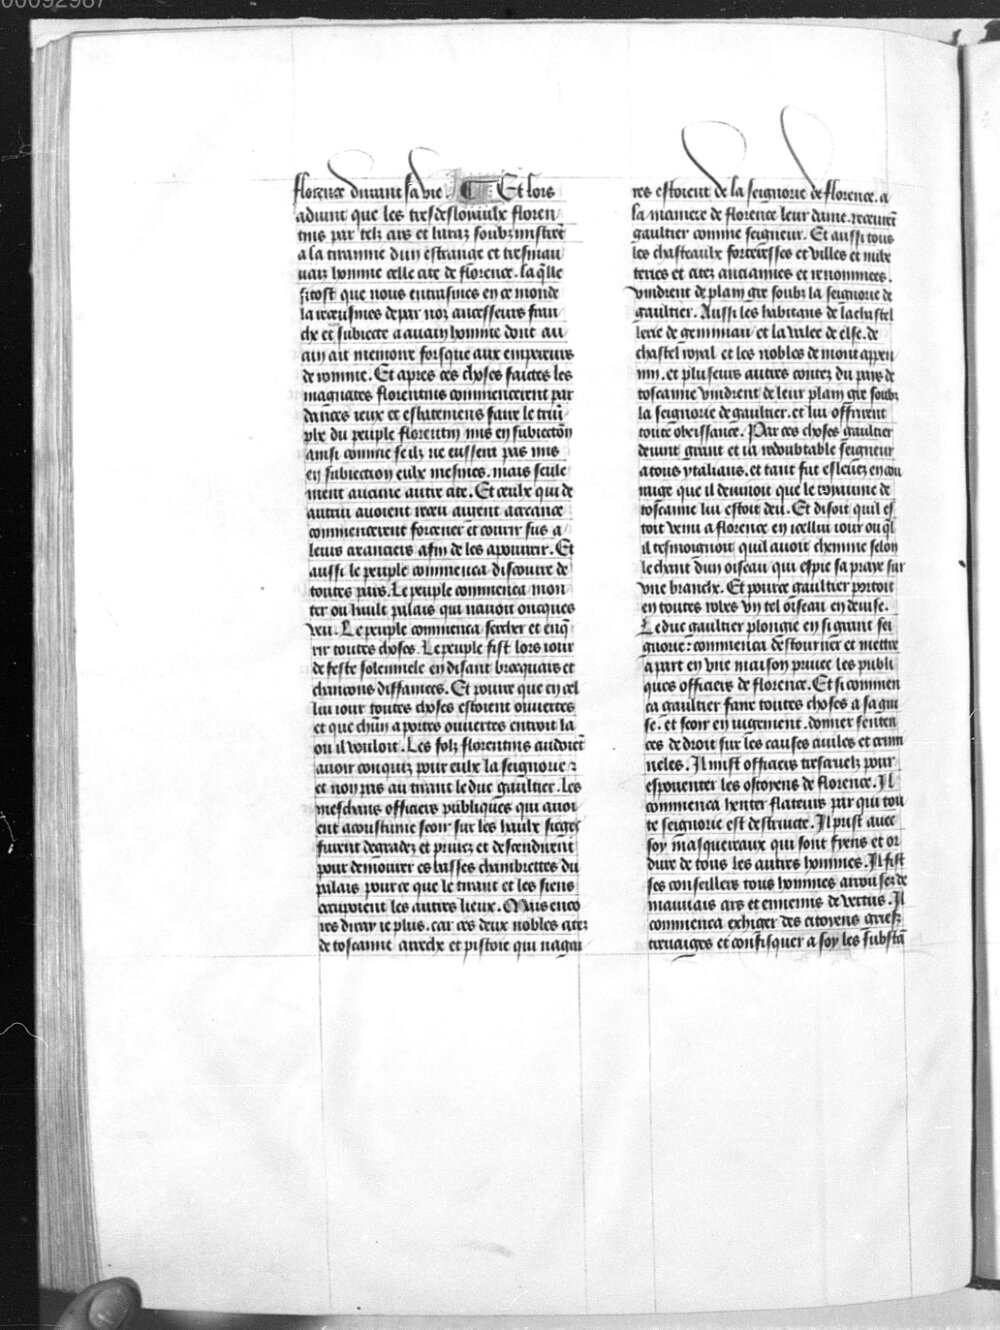 00092987
florence durant sa vie. ¶ Et lors
aduint que les tresdesloiaulx floren
tins par telz ars et baraz soubzmistrēt
a la tirannie dun estrange et tresmau
uaiz homme celle cite de florence. la q̄lle
sitost que nous entrasmes en ce monde
la receusmes de par noz ancesseurs fran
che et subiecte a aucun homme dont au
cun ait memoire forsque aux empereurs
de romme. Et apres ces choses faictes les
magnates florentins commencerent par
dances ieux et esbatemens faire le triū
phe du peuple florentin mis en subiection
ainsi comme se ilz ne eussent pas mis
en subiection eulx mesmes. mais seule
ment aucune autre cite. Et ceulx qui de
autrui auoient receu argent a creance
commencerent forcener et courir sus a
leurs creanciers afin de les apourir. Et
aussi le peuple commenca discourre de
toutes pars. Le peuple commenca mon
ter ou hault palais qui nauoit oncques
veu. Le peuple commenca sercher et enq̄
rir toutes choses. Le peuple fist lors iour
de feste solennele en disant brocquars et
chancons diffamees. Et pource que en cel
lui iour toutes choses estoient ouuertes
et que chūn a portes ouuertes entroit la
ou il vouloit. Les folz florentins cuidoiēt
auoir conquiz pour eulx la seignorie
et non pas au tirant le duc gaultier. Les
meschans officiers publiques qui auoi
ent acoustume seoir sur les haulx sieges
furent degradez et priuez et descendirent
pour demourer es basses chambrettes du
palais pource que le tirant et les siens
occupoient les autres lieux. Mais enco
res diray ie plus. car ces deux nobles citez
de toscanne arreche et pistoie qui nagai
res estoient de la seignorie de florence. a
la maniere de florence leur dame. receurēt
gaultier comme seigneur. Et aussi tous
les chasteaulx forteresses et villes et
citez anciannes et renommees.
vindrent de plain gre soubz la seignorie de
gaultier. Aussi les habitans de la chastel
lerie de geminian et la valee de else. de
chastel royal et les nobles de mont appen
nin. et pluseurs autres contez du pais de
toscanne vindrent de leur plain gre soubz
la seignorie de gaultier. et lui offrirent
toute obeissance. Par ces choses gaultier
deuint grant et ia redoubtable seigneur
a tous ytalians. et tant fut esleuez en cou
rage que il deuinoit que le royaume de
toscanne lui estoit deu. Et disoit quil es
toit venu a florence en icellui iour ou q̄l
il tesmoignoit quil auoit chemine selon
le chant dun oiseau qui espie sa praye sur
vne branche. Et pource gaultier portoit
en toutes robes vn tel oiseau en deuise.
Le duc gaultier plongie en si grant sei
gnorie: commenca destourner et mettre
a part en vne maison priuee les publi
ques officiers de florence. Et si commen
ca gaultier faire toutes choses a sa gui
se. et seoir en iugement. donner senten
ces de droit sur les causes ciuiles et crimi
neles. Il mist officiers trescruelz pour
espouenter les citoyens de florence. Il
commenca henter flateurs par qui tou
te seignorie est destruicte. Il prist auec
soy masquereaux qui sont fiens et or
dure de tous les autres hommes. Il fist
ses conseilliers tous hommes de
mauuais ars et ennemis de vertus. Il
commenca exhiger des citoyens griefz
treuaiges et confisquer a soy les substā